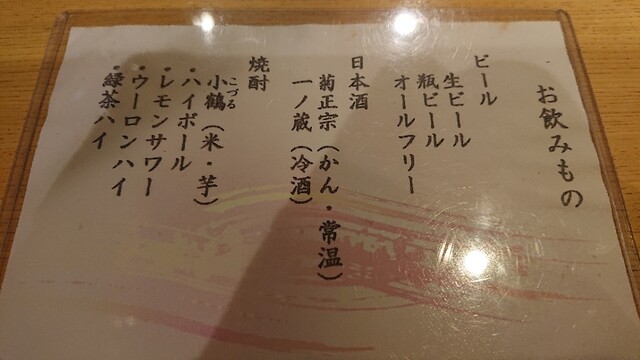 お飲みもの
ビール
生ビール
瓶ビール
オールフリー
日本酒
菊正宗(かん・常温)
一ノ蔵(冷酒)
焼酎
小鶴(米・芋)
こづる
・ハイボール
・レモンサワー
・ウーロンハイ
・緑茶ハイ